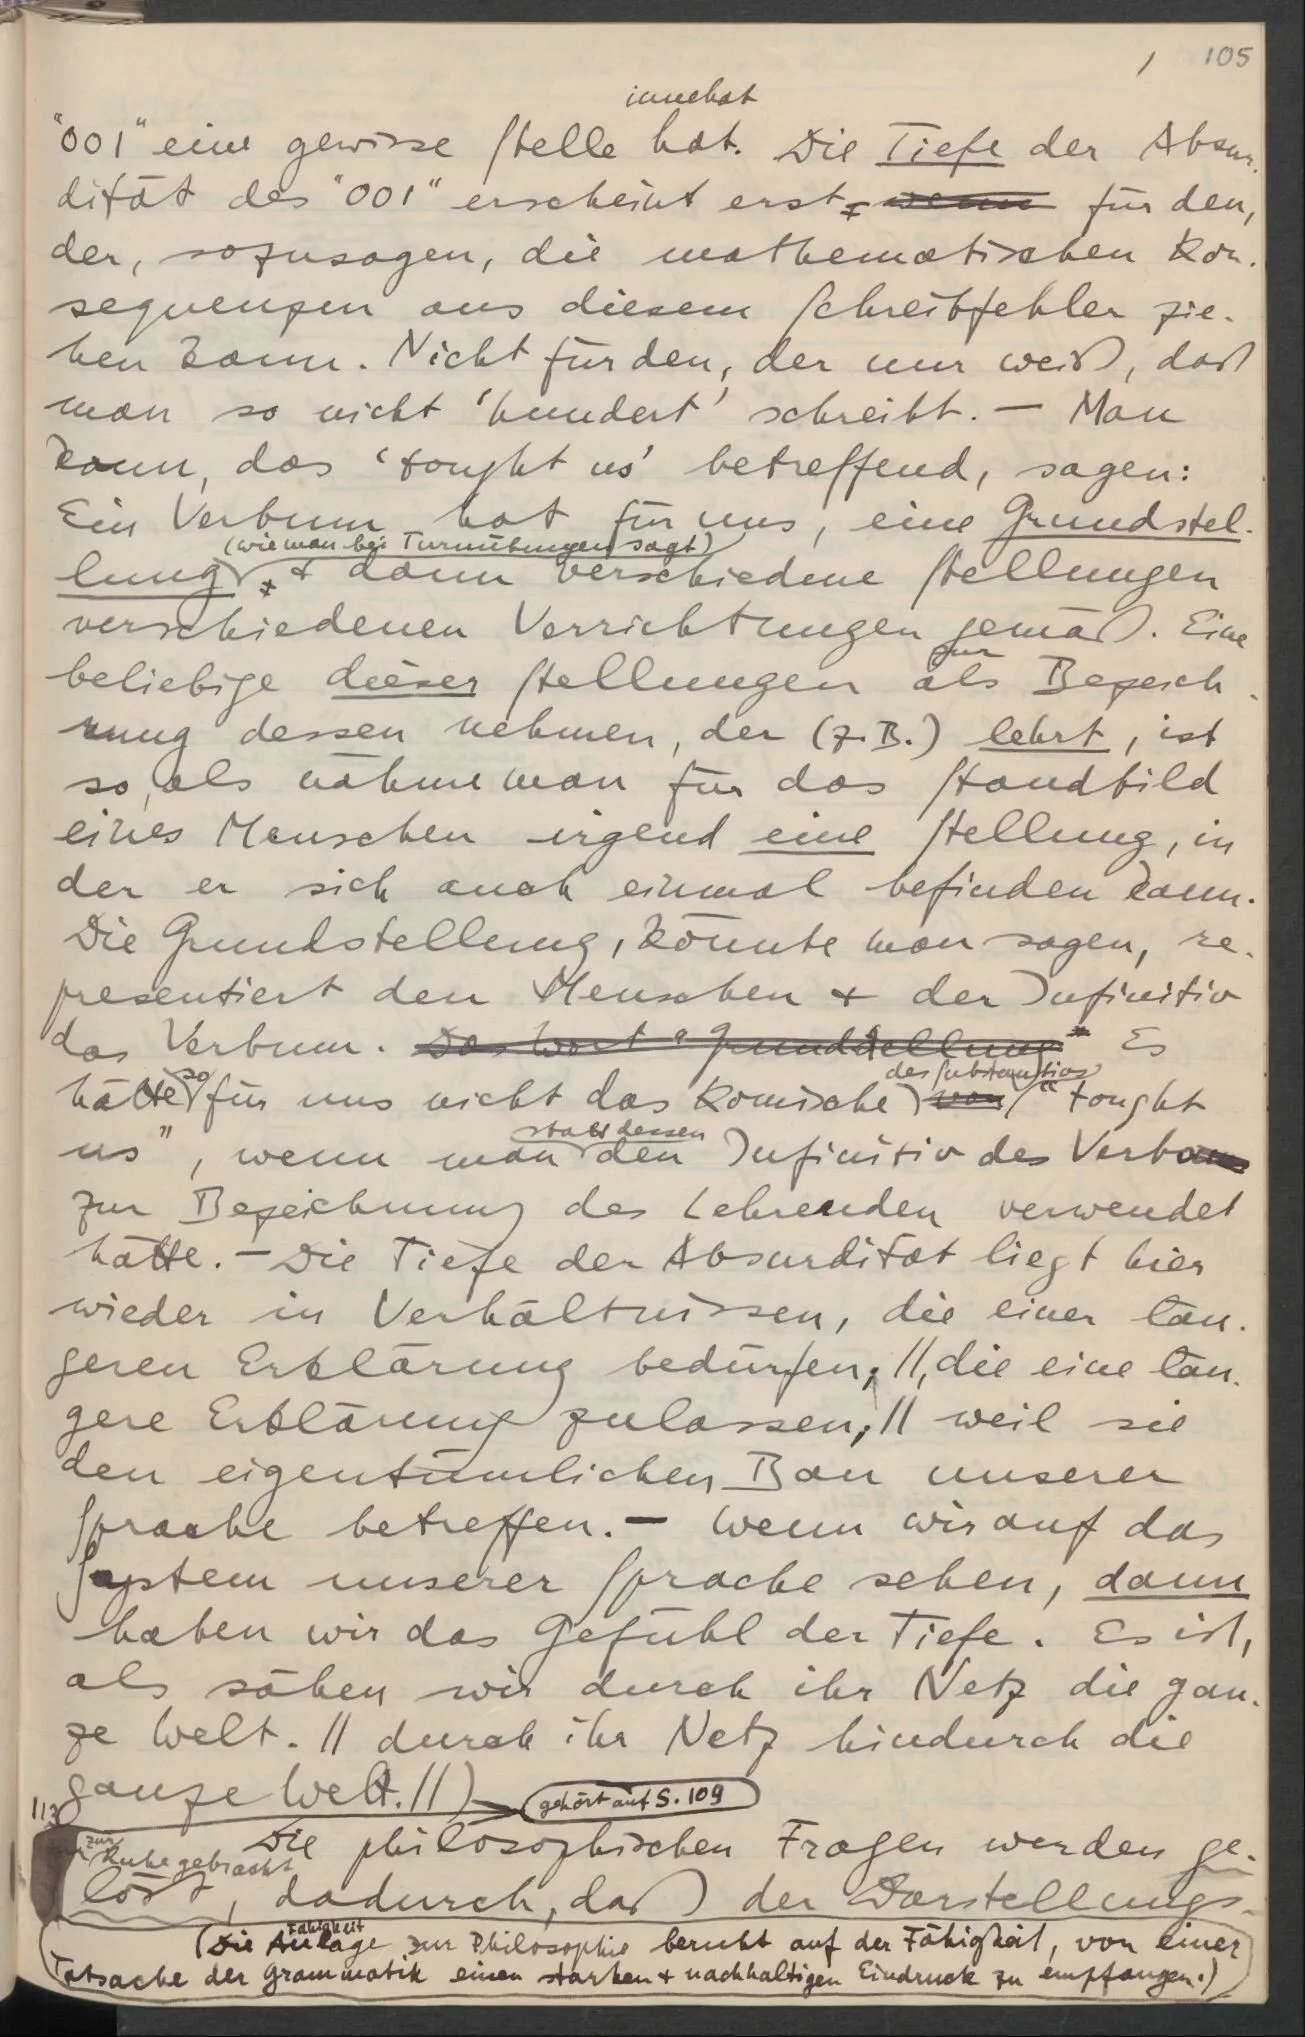 / 105
innehat
"001" eine gewisse Stelle hat. Die Tiefe der Absur-
dität des "001" erscheint erst, wenn für den,
der, sozusagen, die mathematischen Kon-
sequenzen aus diesem Schreibfehler zie-
hen kann. Nicht für den, der nur weiß, daß
man so nicht 'hundert' schreibt. — Man
kann, das 'tought us' betreffend, sagen:
Ein Verbum hat für uns, eine Grundstel-
(wie man bei Turnübungen sagt)
lung + dann verschiedene Stellungen
verschiedenen Verrichtungen gemäß. Eine
zur
beliebige dieser Stellungen als Bezeich-
nung dessen nehmen, der (z.B.) lehrt, ist
so, als nähme man für das Standbild
eines Menschen irgend eine Stellung, in
der er sich auch einmal befinden kann.
Die Grundstellung, könnte man sagen, re-
presentiert den Menschen + der Infinitiv
das Verbum. Das Wort "Grundstellung" Es
so des Substantivs
hätte für uns nicht das Komische von "tought
statt dessen
us", wenn man den Infinitiv des Verbums
zur Bezeichnung des Lehrenden verwendet
hätte. — Die Tiefe der Absurdität liegt hier
wieder in Verhältnissen, die einer län-
geren Erklärung bedürfen, //, die eine län-
gere Erklärung zulassen, // weil sie
den eigentümlichen Bau unserer
Sprache betreffen. — Wenn wir auf das
System unserer Sprache sehen, dann
haben wir das Gefühl der Tiefe. Es ist,
als sähen wir durch ihr Netz die gan-
ze Welt. // durch ihr Netz hindurch die
ganze Welt. //)
gehört auf S. 109
113
Die philosophischen Fragen werden ge-
zur Ruhe gebracht
löst, dadurch, daß der Darstellungs-
Fähigkeit
(Die Anlage zur Philosophie beruht auf der Fähigkeit, von einer
Tatsache der Grammatik einen starken + nachhaltigen Eindruck zu empfangen.)